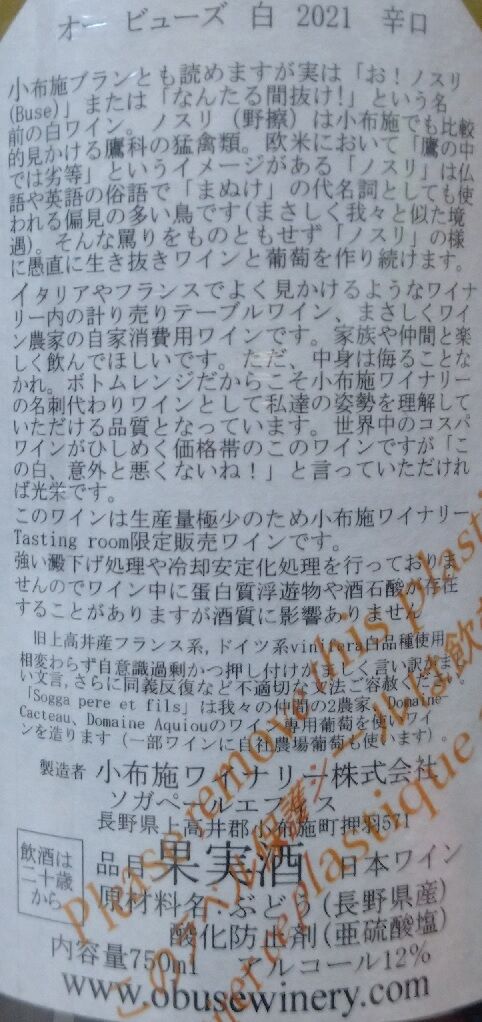 オー ビューズ 白 2021 辛口
小布施ブランとも読めますが実は「お！ノスリ
(Buse)」または「なんたる間抜け！」という名
前の白ワイン。ノスリ（野擦）は小布施でも比較
的見かける鷹科の猛禽類。欧米において「鷹の中
では劣等」というイメージがある「ノスリ」は仏
語や英語の俗語で「まぬけ」の代名詞としても使
われる偏見の多い鳥です(まさしく我々と似た境
遇)。そんな罵りをものともせず「ノスリ」の様
に愚直に生き抜きワインと葡萄を作り続けます。
イタリアやフランスでよく見かけるようなワイナ
リー内の計り売りテーブルワイン、まさしくワイ
ン農家の自家消費用ワインです。家族や仲間と楽
しく飲んでほしいです。ただ、中身は侮ることな
かれ。ボトムレンジだからこそ小布施ワイナリー
の名刺代わりワインとして私達の姿勢を理解して
いただける品質となっています。世界中のコスパ
ワインがひしめく価格帯のこのワインですが「こ
の白、意外と悪くないね！」と言っていただけれ
ば光栄です。
このワインは生産量極少のため小布施ワイナリー
Tasting room限定販売ワインです。
強い澱下げ処理や冷却安定化処理を行っておりま
せんのでワイン中に蛋白質浮遊物や酒石酸が存在
することがありますが酒質に影響ありません
旧上高井産フランス系,ドイツ系vinifera白品種使用
相変わらず自意識過剰かつ押し付けがましく言い訳がま
い文言,さらに同義反復など不適切な文法ご容赦ください。
「Sogga pere et fils」は我々の仲間の2農家、Domaine
Cacteau、Domaine Aquiouのワイン専用葡萄を使いワイ
ンを造ります（一部ワインに自社農場葡萄も使います）。
製造者 小布施ワイナリー株式会社
ソガペールエフィス
長野県上高井郡小布施町押羽571
飲酒は
二十歳
から
品目 果実酒 日本ワイン
原材料名:ぶどう(長野県産)
酸化防止剤(亜硫酸塩)
内容量750ml アルコール12%
www.obusewinery.com
Please remove this plastic
このラベル保護シールは飲
plastique